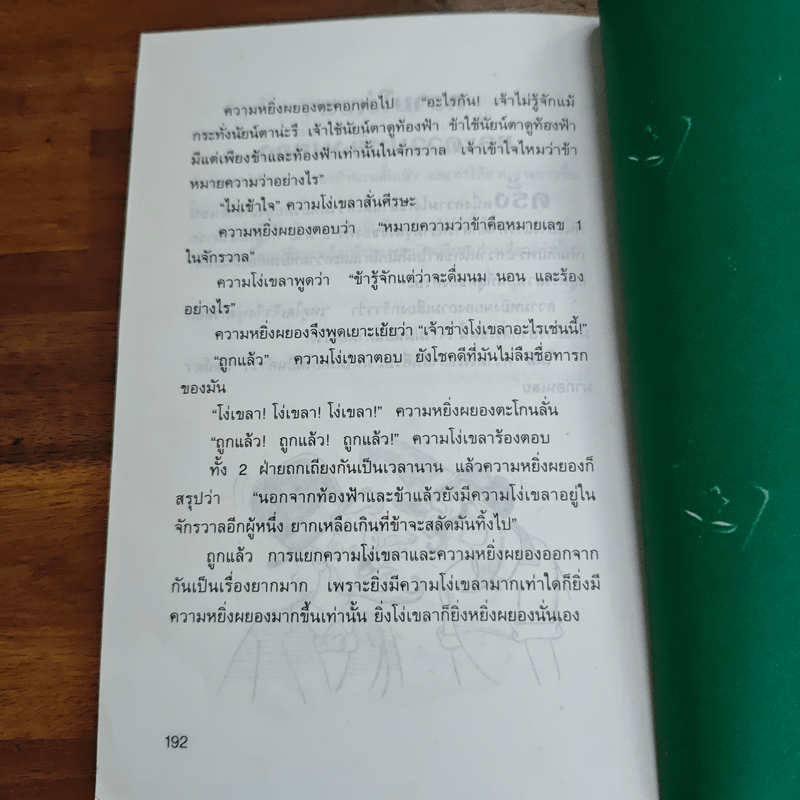 ความหยิ่งผยองตะคอกต่อไป "อะไรกัน! เจ้าไม่รู้จักแม้
กระทั่งนัยน์ตาน่ะรึ เจ้าใช้นัยน์ตาดูท้องฟ้า ข้าใช้นัยน์ตาดูท้องฟ้า
มีแต่เพียงข้าและท้องฟ้าเท่านั้นในจักรวาล เจ้าเข้าใจไหมว่าข้า
หมายความว่าอย่างไร"
"ไม่เข้าใจ" ความโง่เขลาสั่นศีรษะ
ความหยิ่งผยองตอบว่า "หมายความว่าข้าคือหมายเลข 1
ในจักรวาล"
ความโง่เขลาพูดว่า "ข้ารู้จักแต่ว่าจะดื่มนม นอน และร้อง
อย่างไร"
ความหยิ่งผยองจึงพูดเยาะเย้ยว่า "เจ้าช่างโง่เขลาอะไรเช่นนี้!"
"ถูกแล้ว" ความโง่เขลาตอบ ยังโชคดีที่มันไม่ลืมชื่อทารก
ของมัน
"โง่เขลา! โง่เขลา! โง่เขลา!" ความหยิ่งผยองตะโกนลั่น
"ถูกแล้ว! ถูกแล้ว! ถูกแล้ว!" ความโง่เขลาร้องตอบ
ทั้ง 2 ฝ่ายถกเถียงกันเป็นเวลานาน แล้วความหยิ่งผยองก็
สรุปว่า "นอกจากท้องฟ้าและข้าแล้วยังมีความโง่เขลาอยู่ใน
จักรวาลอีกผู้หนึ่ง ยากเหลือเกินที่ข้าจะสลัดมันทิ้งไป"
ถูกแล้ว การแยกความโง่เขลาและความหยิ่งผยองออกจาก
กันเป็นเรื่องยากมาก เพราะยิ่งมีความโง่เขลามากเท่าใดก็ยิ่งมี
ความหยิ่งผยองมากขึ้นเท่านั้น ยิ่งโง่เขลาก็ยิ่งหยิ่งผยองนั่นเอง
192